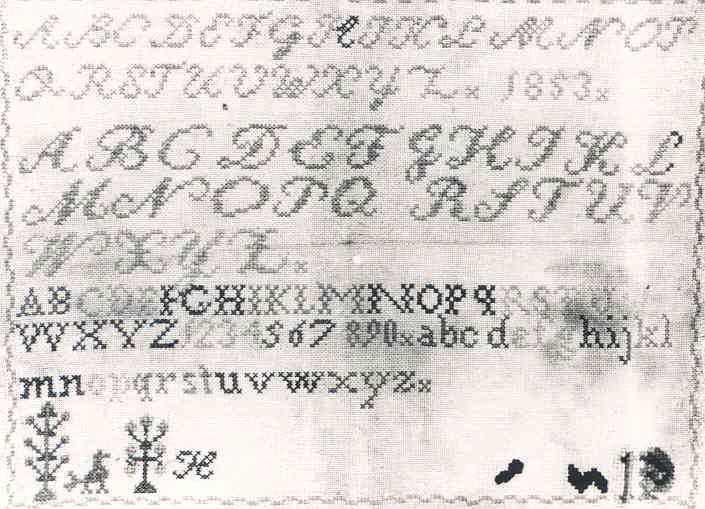 A B C D E F G H I K L M N O P
Q R S T U V W X Y Z x 1853x
A B C D E F G H I K L
M N O P Q R S T U V
W X Y Z x
ABCDEFGHIKLMNOPqRSTU
VWXYZ1234567890xabcdefghijkl
mnopqrstuvwxyzx
H